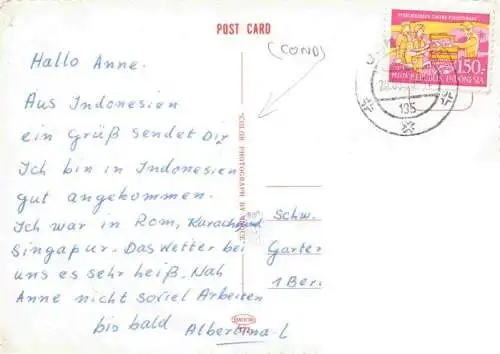 POST CARD
(COND)
150.-
REPUBLIK INDONESIA
195
Hallo Anne.
Aus Indonesien
ein Grüß sendet Dir
Ich bin in Indonesien
gut angekommen.
Ich war in Rom, Karachi und
Singapur. Das Wetter bei
uns es sehr heiß. Nah
Anne nicht soviel Arbeiten
bis bald Albertina-L
COLOR PHOTOGRAPH BY
Schw.
Garten
1 Ber.